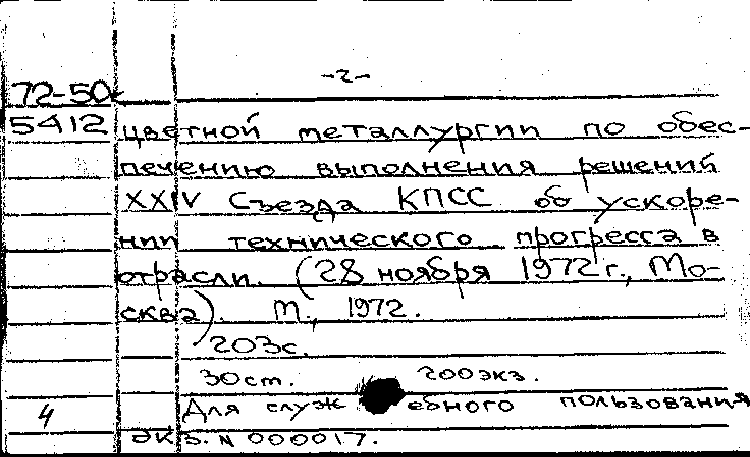 -2-
72-50
5412 цветной металлургии по обес-
печению выполнения решений
XXIV Съезда КПСС об ускоре-
нии технического прогресса в
отрасли. (28 ноября 1972 г., Мо-
сква). М., 1972.
203с.
30 ст. 200 экз.
4 Для служебного пользования
экз. N 000017.